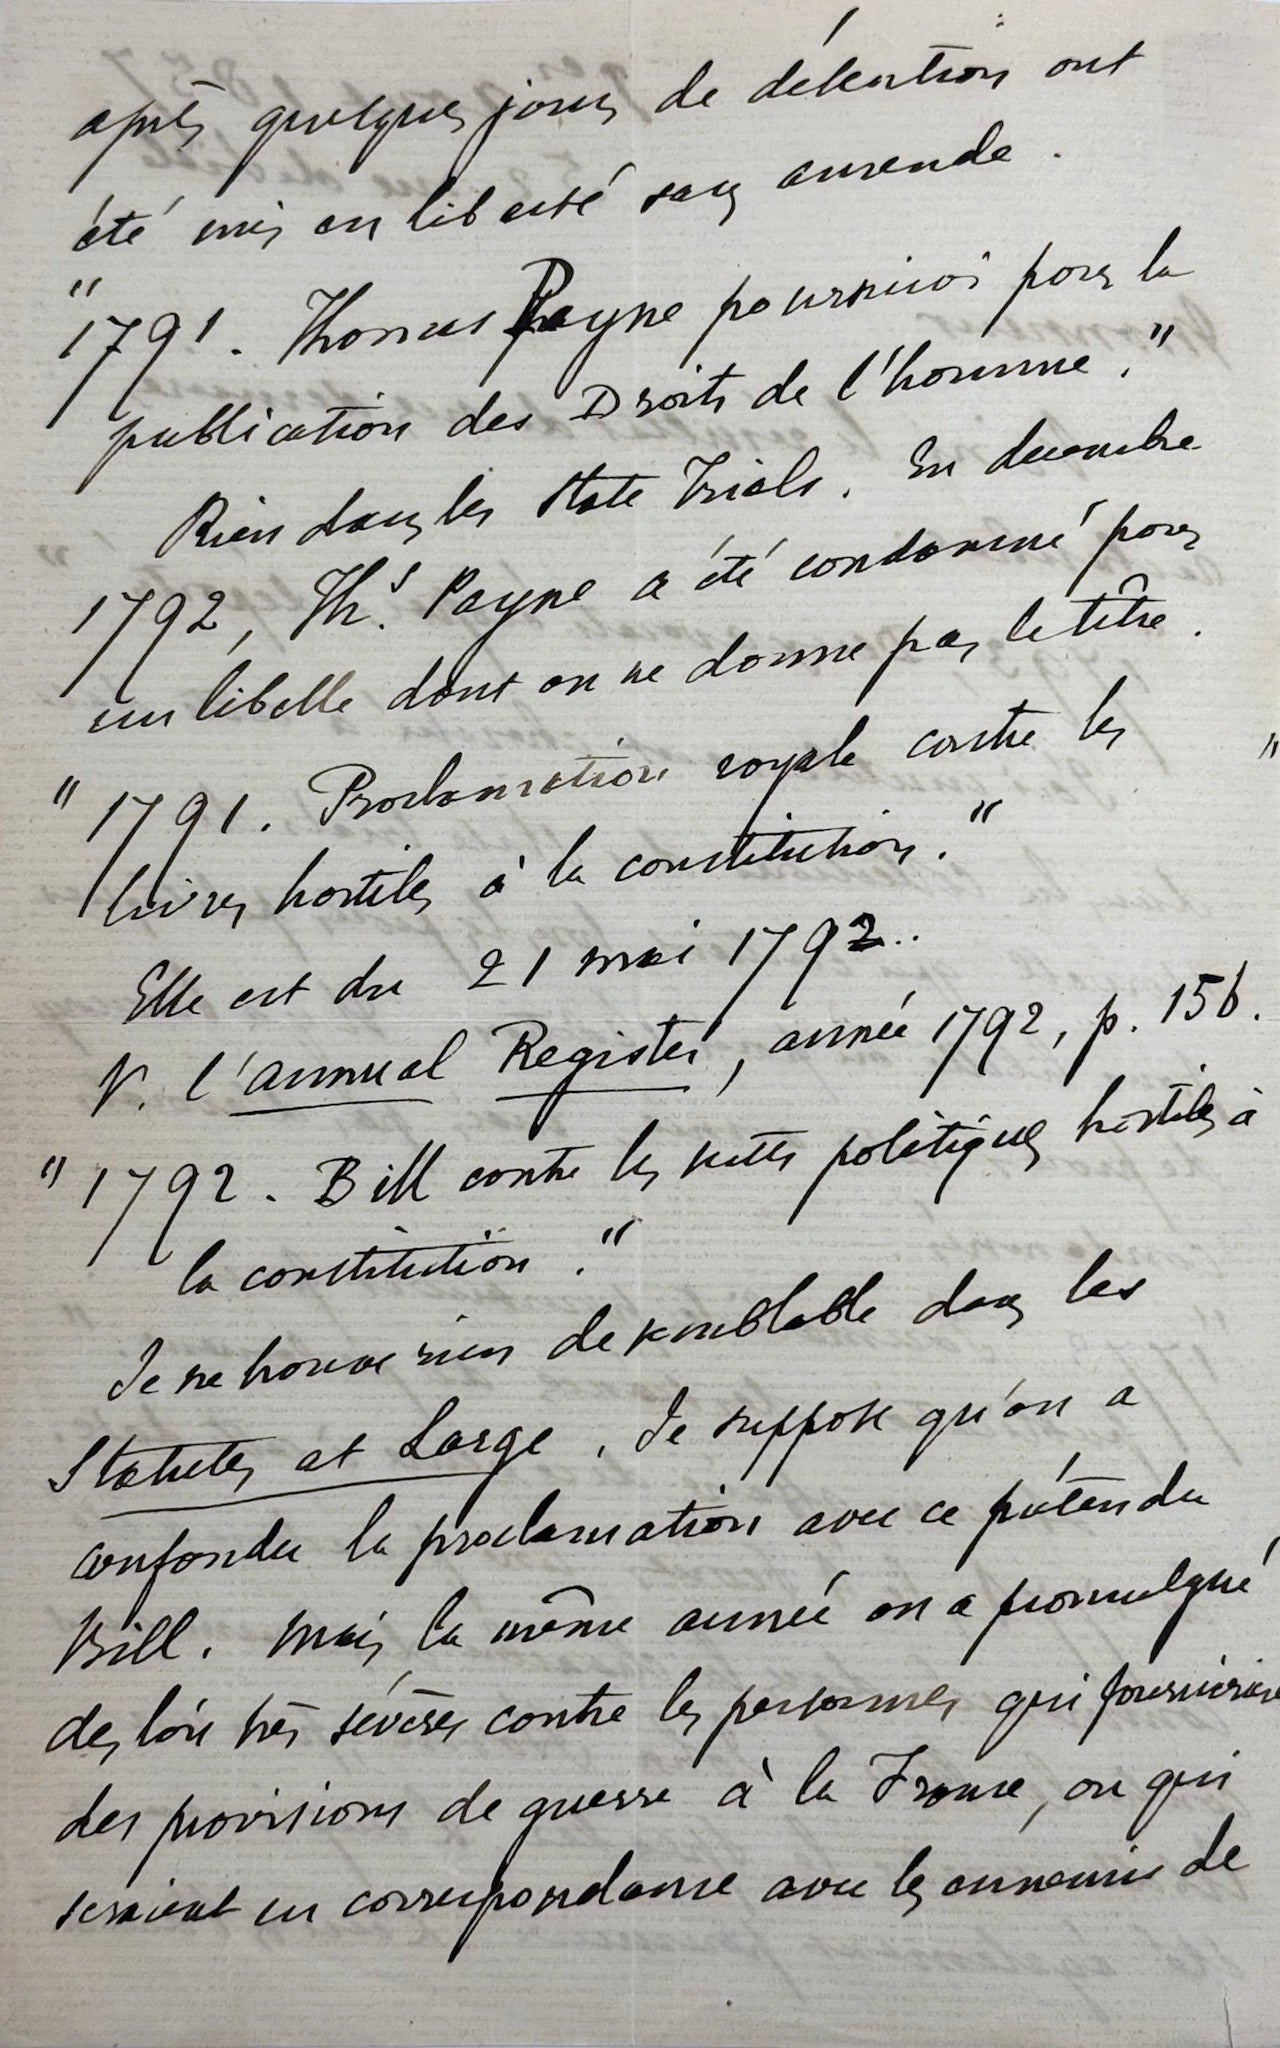 après quelques jours de détention ont
été mis en liberté sans amende.
"1791. Thomas Payne poursuivi pour la
publication des Droits de l'homme."
Rien dans les State Trials. En décembre
1792, Th.s Payne a été condamné pour
un libelle dont on ne donne pas le titre.
"1791. Proclamation royale contre les "
livres hostiles à la constitution."
Elle est du 21 mai 1792..
V. l'annual Register, année 1792, p. 156.
"1792. Bill contre les sectes politiques hostiles à
la constitution."
Je ne trouve rien de semblable dans les
Statutes at Large. Je suppose qu'on a
confondu la proclamation avec ce prétendu
Bill. Mais la même année on a promulgué
des lois très sévères contre les personnes qui fourniraient
des provisions de guerre à la France, ou qui
seraient en correspondance avec les ennemis de